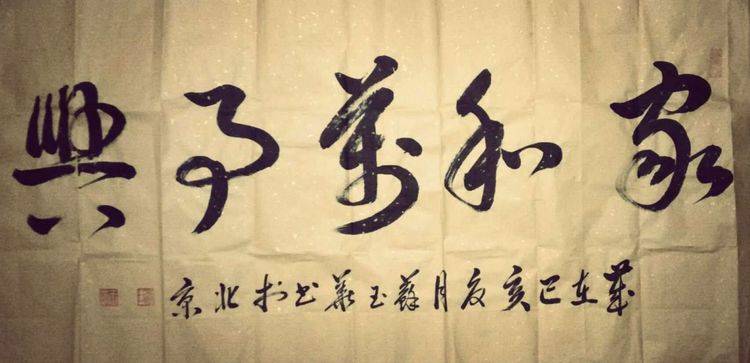 家和萬事興
歲在己亥夏月蘇玉華書於北京